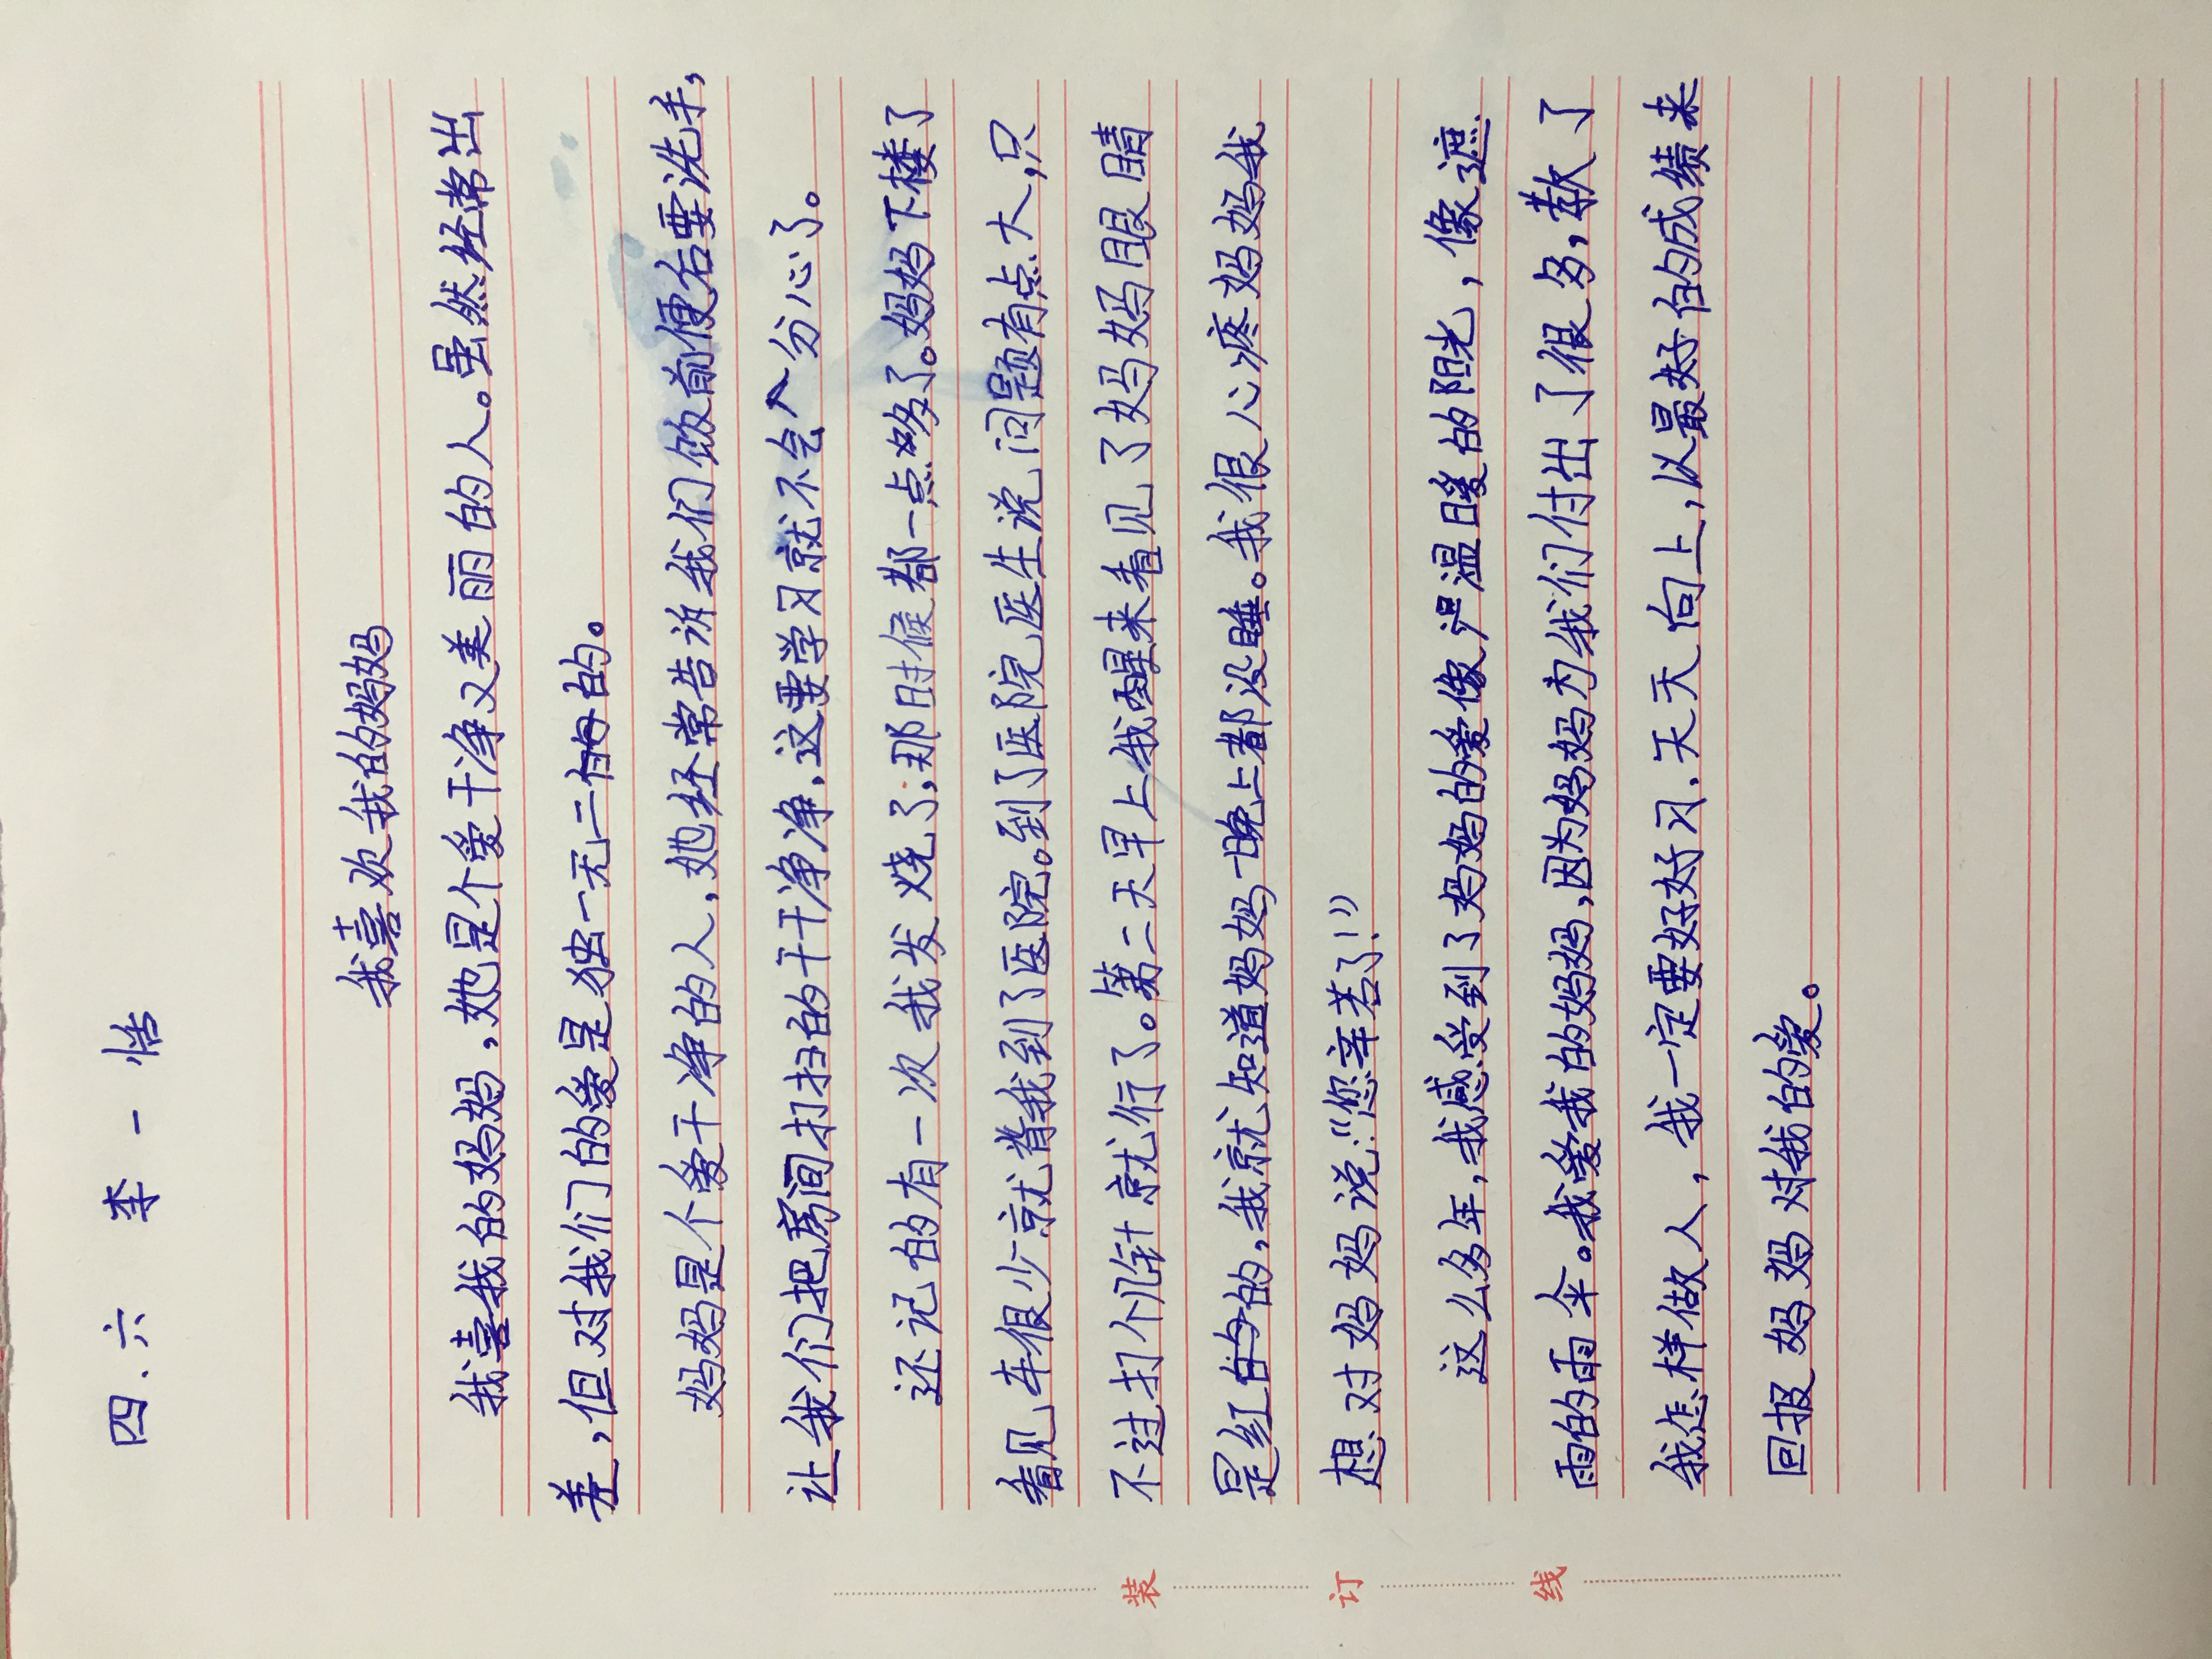 四.六 李一恬
我喜欢我的妈妈
我喜我的妈妈,她是个爱干净又美丽的人。虽然经常出
差,但对我们的爱是独一无二的。
妈妈是个爱干净的人,她经常告诉我们饭前便后要洗手,
让我们把房间打扫的干干净净,这要学习就不会分心了。
还记的有一次我发烧了,那时候都一点多了。妈妈下楼了
看见车很少就背我到了医院。到了医院医生说问题有点大,只
不过打个几针就行了。第二天早上我醒来看见了妈妈眼睛
是红的,我就知道妈妈一晚上都没睡。我很心疼妈妈我
想对妈妈说:“您辛苦了!”
这么多年,我感受到了妈妈的爱像温暖的阳光,像遮
雨的雨伞。我爱我的妈妈,因为妈妈为我们付出了很多,教了
我怎样做人,我一定要好好习,天天向上,以最好的成绩来
回报妈妈对我的爱。
装订线